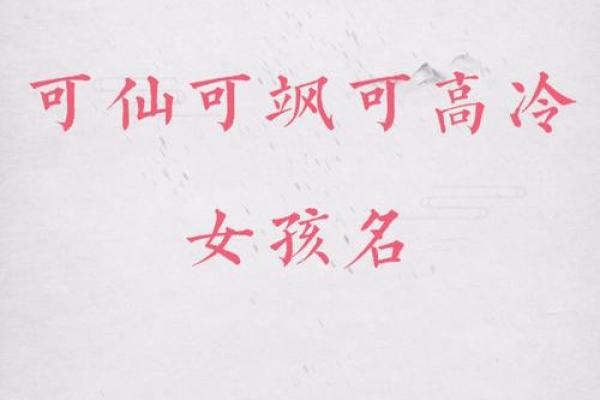 可仙可飒可高冷
女孩名